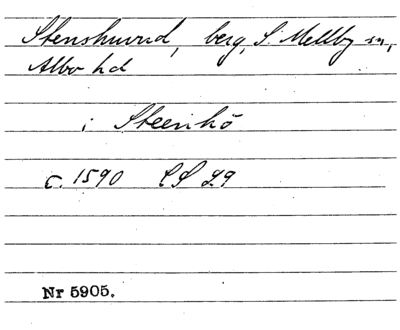 Stenshuvud, berg, S. Mellby sn,
Albo hd
i Steenhö
c. 1590 CS 29
Nr 5905.